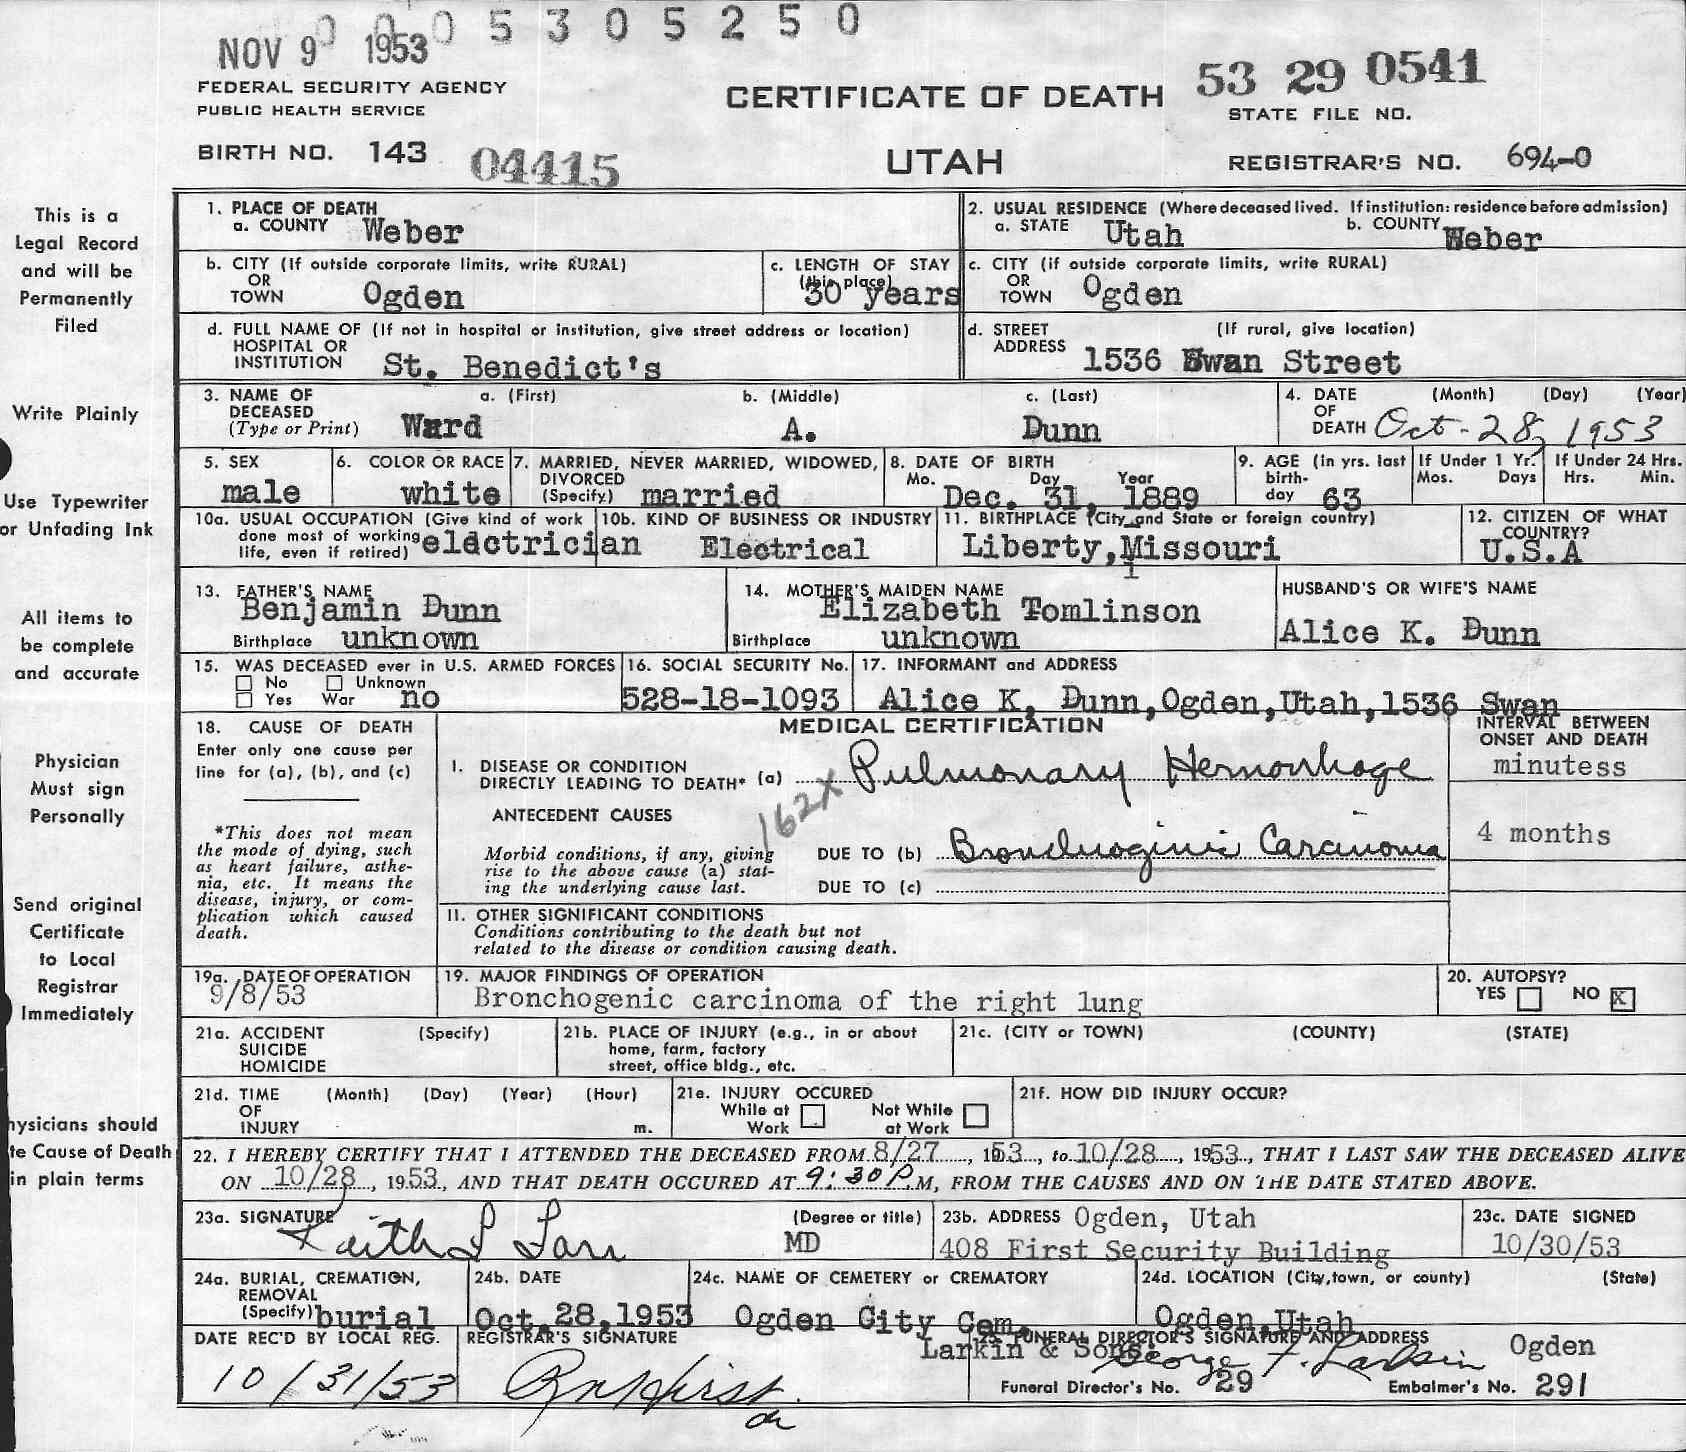 0 0 0 5 3 0 5 2 5 0
NOV 9 1953
FEDERAL SECURITY AGENCY
PUBLIC HEALTH SERVICE
CERTIFICATE OF DEATH
53 29 0541
STATE FILE NO.
BIRTH NO. 143 04415
UTAH
REGISTRAR'S NO. 694-0
This is a
Legal Record
and will be
Permanently
Filed
Write Plainly
Use Typewriter
or Unfading Ink
All items to
be complete
and accurate
Physician
Must sign
Personally
Send original
Certificate
to Local
Registrar
Immediately
hysicians should
te Cause of Death
in plain terms
1. PLACE OF DEATH
a. COUNTY Weber
2. USUAL RESIDENCE (Where deceased lived. If institution: residence before admission)
a. STATE Utah b. COUNTY Weber
b. CITY (If outside corporate limits, write RURAL)
OR
TOWN Ogden
c. LENGTH OF STAY
(this place)
30 years
c. CITY (if outside corporate limits, write RURAL)
OR
TOWN Ogden
d. FULL NAME OF (If not in hospital or institution, give street address or location)
HOSPITAL OR
INSTITUTION St. Benedict's
d. STREET (If rural, give location)
ADDRESS 1536 Swan Street
3. NAME OF a. (First) b. (Middle) c. (Last)
DECEASED
(Type or Print) Ward A. Dunn
4. DATE (Month) (Day) (Year)
OF
DEATH Oct-28, 1953
5. SEX
male
6. COLOR OR RACE
white
7. MARRIED, NEVER MARRIED, WIDOWED,
DIVORCED
(Specify) married
8. DATE OF BIRTH
Mo. Day Year
Dec. 31, 1889
9. AGE (in yrs. last
birth-
day 63
If Under 1 Yr.
Mos. Days
If Under 24 Hrs.
Hrs. Min.
10a. USUAL OCCUPATION (Give kind of work
done most of working
life, even if retired) eldctrician
10b. KIND OF BUSINESS OR INDUSTRY
Electrical
11. BIRTHPLACE (City and State or foreign country)
Liberty,Missouri
12. CITIZEN OF WHAT
COUNTRY?
U.S.A
13. FATHER'S NAME
Benjamin Dunn
Birthplace unknown
14. MOTHER'S MAIDEN NAME
Elizabeth Tomlinson
Birthplace unknown
HUSBAND'S OR WIFE'S NAME
Alice K. Dunn
15. WAS DECEASED ever in U.S. ARMED FORCES
No Unknown
Yes War no
16. SOCIAL SECURITY No.
528-18-1093
17. INFORMANT and ADDRESS
Alice K. Dunn,Ogden,Utah,1536 Swan
18. CAUSE OF DEATH
Enter only one cause per
line for (a), (b), and (c)
*This does not mean
the mode of dying, such
as heart failure, asthe-
nia, etc. It means the
disease, injury, or com-
plication which caused
death.
MEDICAL CERTIFICATION
INTERVAL BETWEEN
ONSET AND DEATH
I. DISEASE OR CONDITION
DIRECTLY LEADING TO DEATH* (a) Pulmonary Hemorrhage
minutess
ANTECEDENT CAUSES
162X
Morbid conditions, if any, giving
rise to the above cause (a) stat-
ing the underlying cause last.
DUE TO (b) Bronchogenic Carcinoma
4 months
DUE TO (c)
II. OTHER SIGNIFICANT CONDITIONS
Conditions contributing to the death but not
related to the disease or condition causing death.
19a. DATE OF OPERATION
9/8/53
19. MAJOR FINDINGS OF OPERATION
Bronchogenic carcinoma of the right lung
20. AUTOPSY?
YES NO X
21a. ACCIDENT (Specify)
SUICIDE
HOMICIDE
21b. PLACE OF INJURY (e.g., in or about
home, farm, factory
street, office bldg., etc.
21c. (CITY or TOWN) (COUNTY) (STATE)
21d. TIME (Month) (Day) (Year) (Hour)
OF
INJURY m.
21e. INJURY OCCURED
While at Not While
Work at Work
21f. HOW DID INJURY OCCUR?
22. I HEREBY CERTIFY THAT I ATTENDED THE DECEASED FROM 8/27, 1953, to 10/28, 1953, THAT I LAST SAW THE DECEASED ALIVE
ON 10/28, 1953, AND THAT DEATH OCCURED AT 9:30 P.M, FROM THE CAUSES AND ON THE DATE STATED ABOVE.
23a. SIGNATURE (Degree or title)
Keith L Farr MD
23b. ADDRESS Ogden, Utah
408 First Security Building
23c. DATE SIGNED
10/30/53
24a. BURIAL, CREMATION,
REMOVAL
(Specify) burial
24b. DATE
Oct.28,1953
24c. NAME OF CEMETERY or CREMATORY
Ogden City Cem.
24d. LOCATION (City, town, or county) (State)
Ogden,Utah
DATE REC'D BY LOCAL REG.
10/31/53
REGISTRAR'S SIGNATURE
25. FUNERAL DIRECTOR'S SIGNATURE AND ADDRESS
Larkin & Sons. George F. Larkin Ogden
Funeral Director's No. 29 Embalmer's No. 291